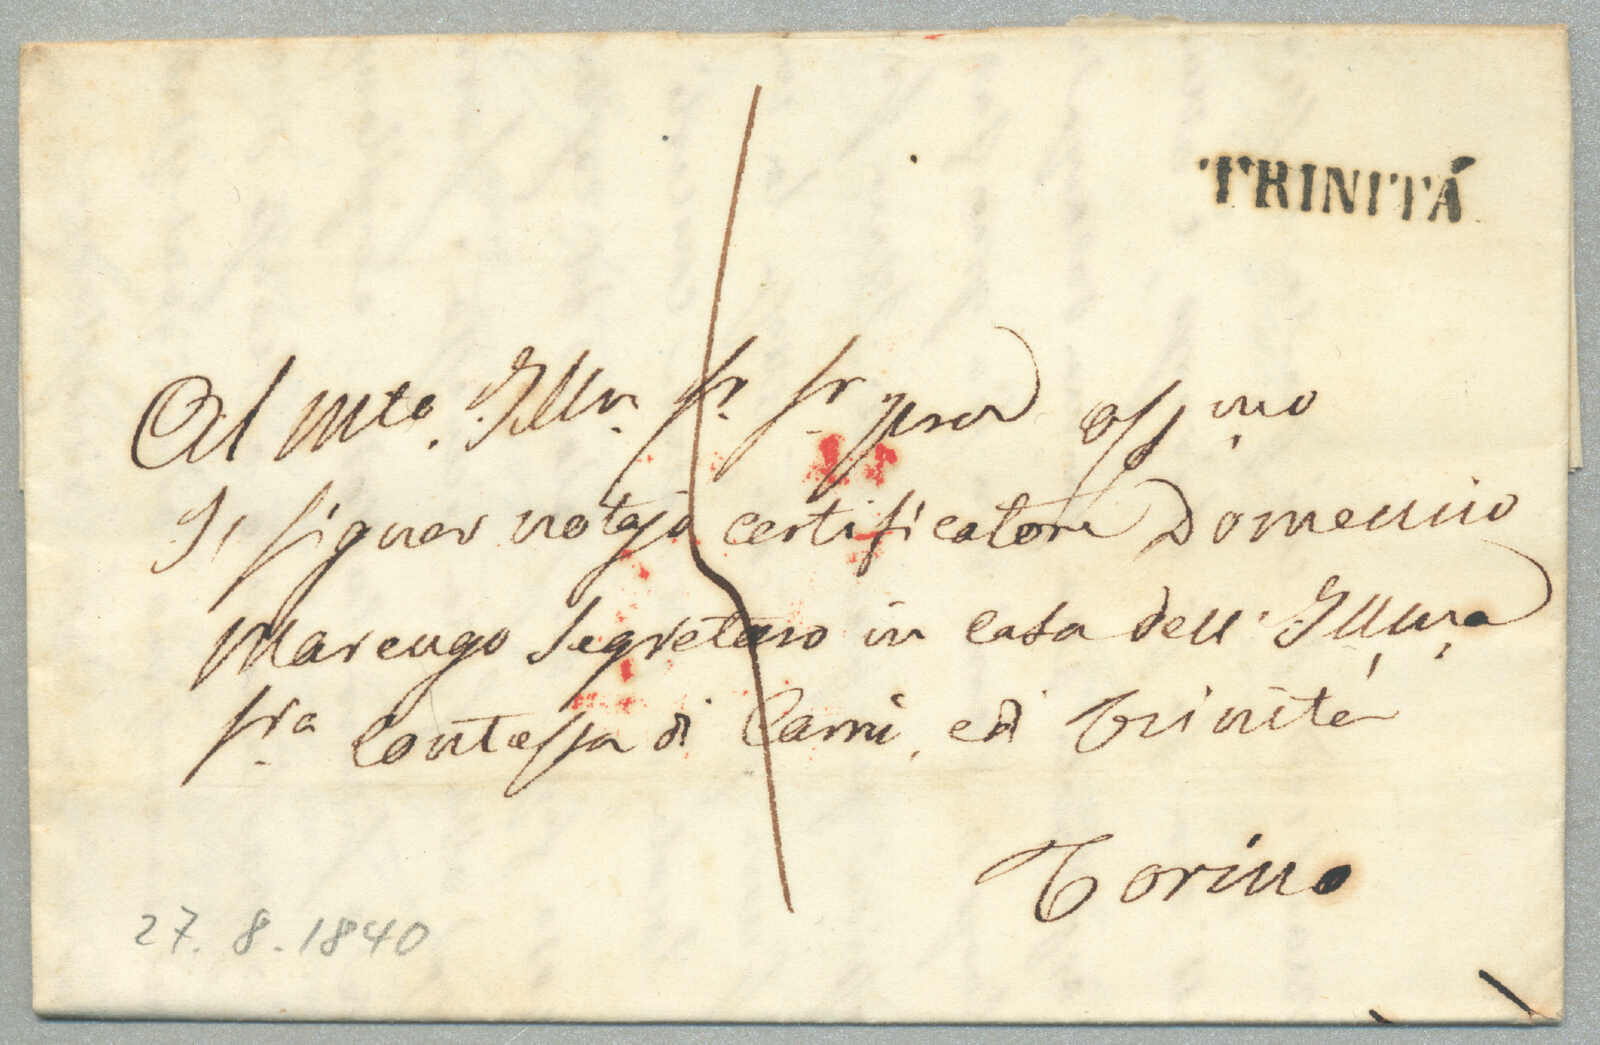 TRINITÁ
Al Mto. Illre. Sr. Sr. pron ossmo
Il signor notajo certificatore Domenico
Marengo Segretaro in casa dell' Illma
Sra Contessa di Carrù, ed Trinità
Torino
27. 8. 1840